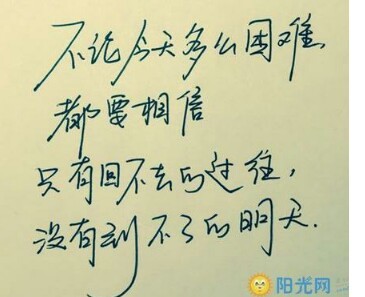 不论今天多么困难,
都要相信
只有回不去的过往,
没有到不了的明天.
阳光网